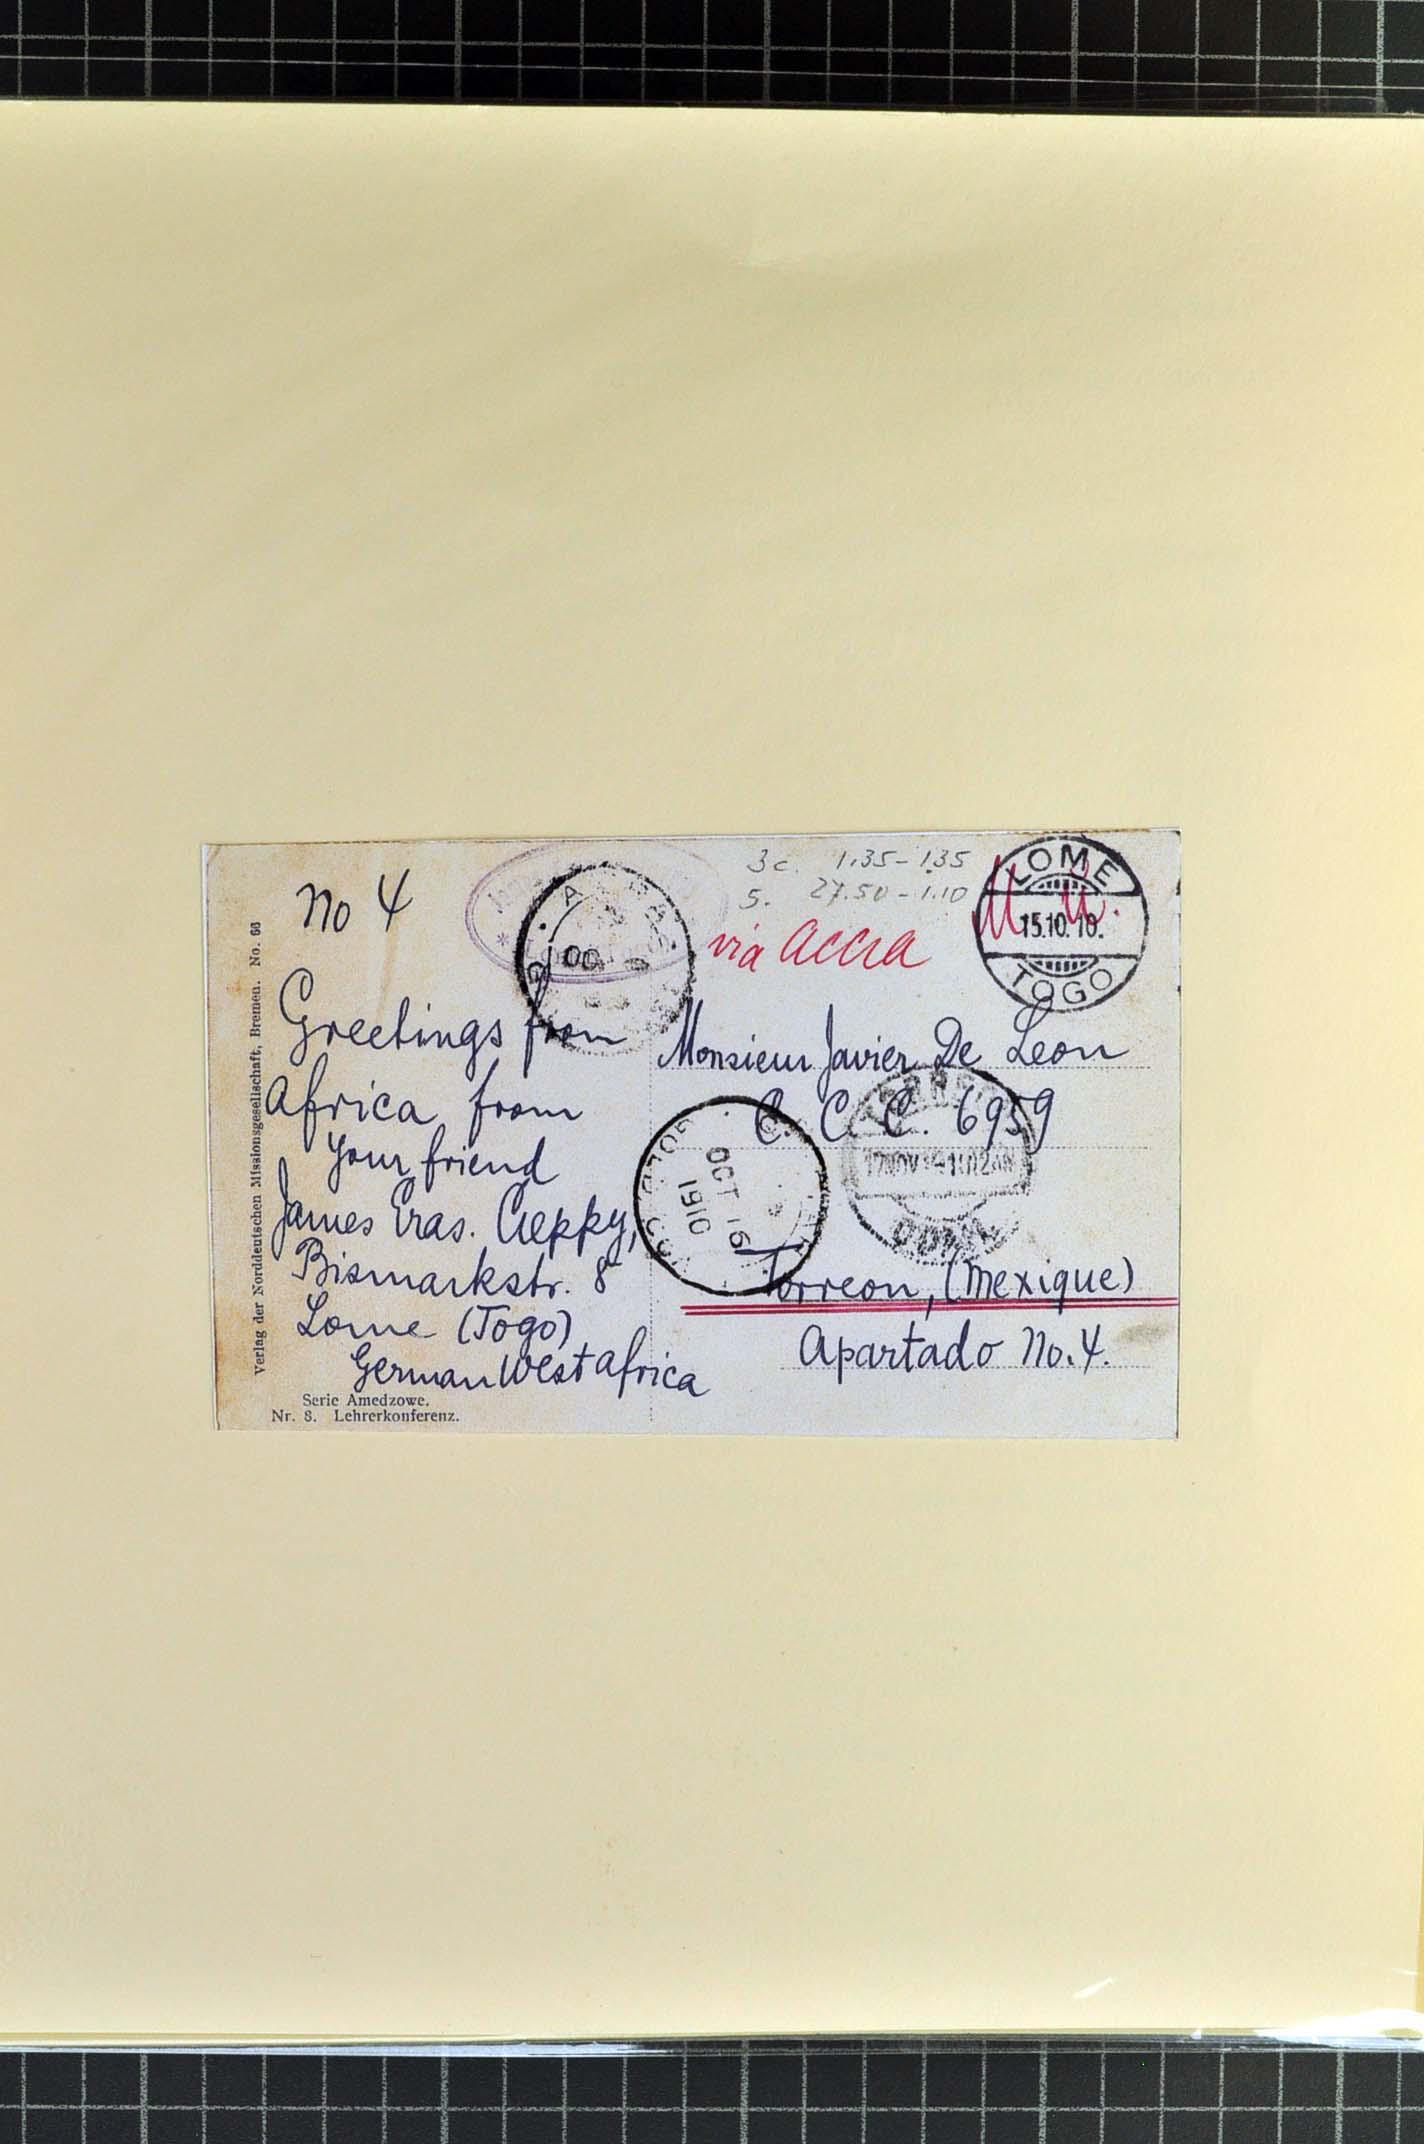 No 4
Greetings from
Africa from
your friend
James Eras. Aeppy,
Bismarkstr. 8
Lome (Togo)
German West Africa
Serie Amedzowe.
Nr. 8. Lehrerkonferenz.
Verlag der Norddeutschen Missionsgesellschaft, Bremen. No. 66
3c. 1.35 - 1.35
5. 27.50 - 1.10
via Accra
LOME
15.10.10.
TOGO
Monsieur Javier De Leon
C. C. C. 6959
Torreon, (Mexique)
Apartado No. 4.
OCT 16
1910
OC